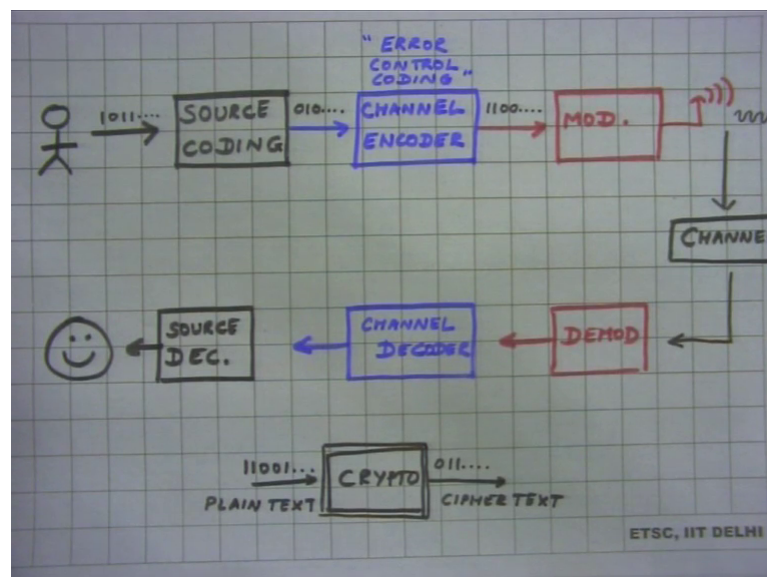 "ERROR
CONTROL
CODING"
1011....
SOURCE
CODING
010....
CHANNEL
ENCODER
1100....
MOD.
CHANNE
SOURCE
DEC.
CHANNEL
DECODER
DEMOD
11001...
PLAIN TEXT
CRYPTO
011....
CIPHER TEXT
ETSC, IIT DELHI